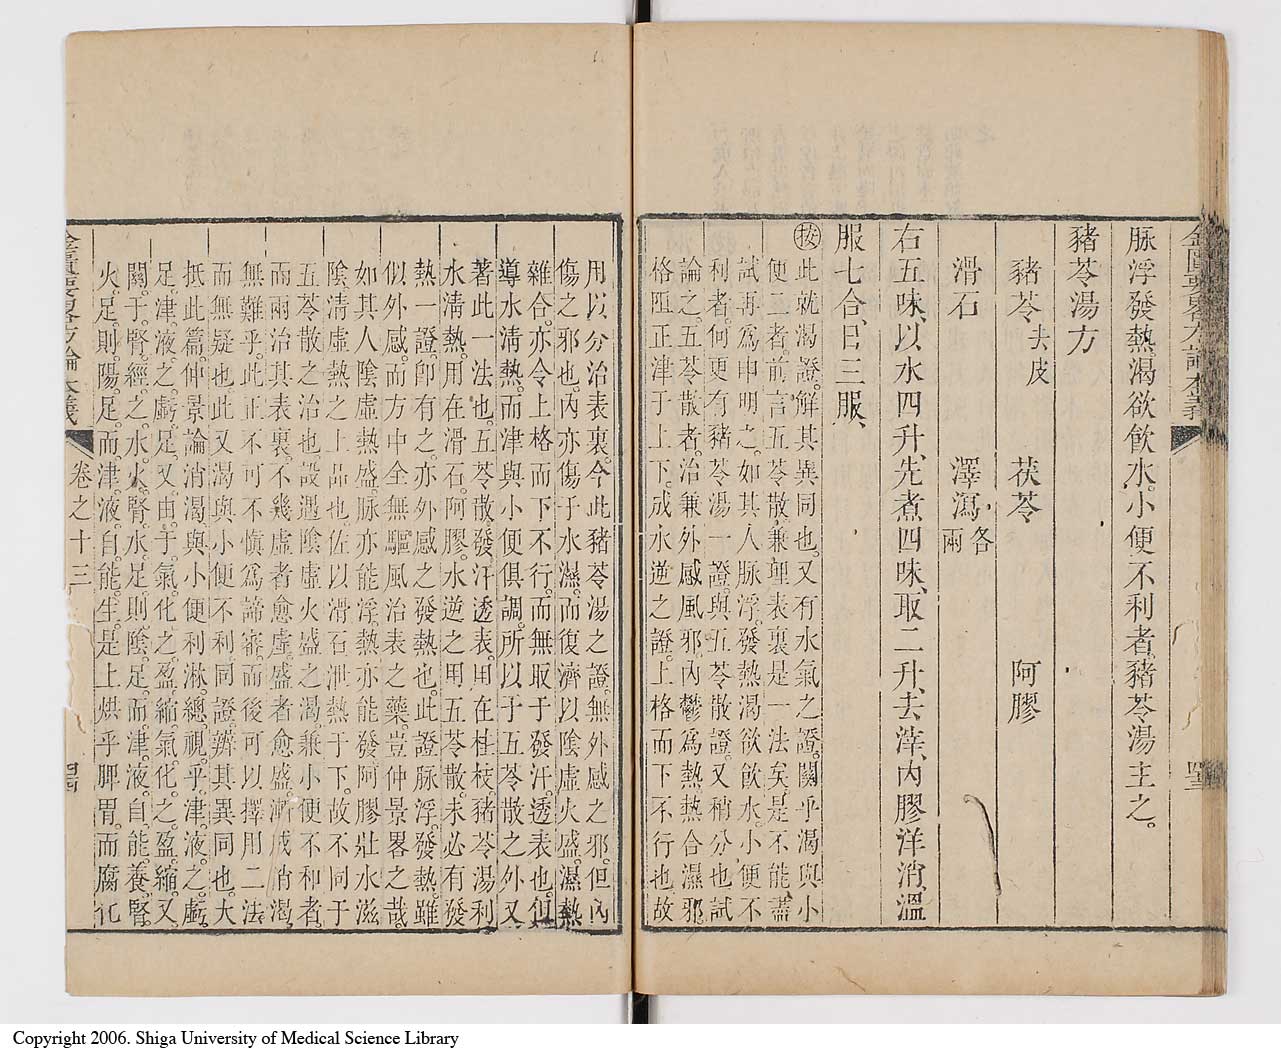 金匱要畧方論本義
脉浮發熱渴欲飮水小便不利者豬苓湯主之
豬苓湯方
豬苓去皮　茯苓　阿膠
滑石　澤瀉各一兩
右五味以水四升先煮四味取二升去滓內膠洋消溫
服七合日三服
按此就渴證解其異同也又有水氣之證關乎渴與小
便二者前言五苓散兼理表裏是一法矣是不能盡
試再爲申明之如其人脉浮發熱渴欲飮水小便不
利者何更有豬苓湯一證與五苓散證又稍分也試
論之五苓散者治兼外感風邪內鬱爲熱熱合濕邪
格阻正津于上下成水逆之證上格而下不行也故
用以分治表裏今此豬苓湯之證無外感之邪但內
傷之邪也內亦傷于水濕而復濟以陰虛火盛濕熱
雜合亦令上格而下不行而無取于發汗透表也但
導水淸熱而津與小便俱調所以于五苓散之外又
著此一法也五苓散發汗透表用在桂枝豬苓湯利
水淸熱用在滑石阿膠水逆之用五苓散未必有發
熱一證卽有之亦外感之發熱也此證脉浮發熱雖
似外感而方中全無驅風治表之藥豈仲景畧之哉
如其人陰虛熱盛脉亦能浮熱亦能發阿膠壯水滋
陰淸虛熱之上品也佐以滑石泄熱于下故不同于
五苓散之治也設遇陰虛火盛之渴兼小便不和者
而兩治其表裏不幾虛者愈虛盛者愈盛漸成消渴
無難乎此正不可不愼爲諦審而後可以擇用二法
而無疑也此又渴與小便不利同證辨其異同也大
抵此篇仲景論消渴與小便利淋總視乎津液之虧
足津液之虧足又由于氣化之盈縮氣化之盈縮又
關于腎經之水火腎水足則陰足而津液自能養腎
火足則陽足而津液自能生是上烘乎脾胃而腐化
金匱要畧方論本義　卷之十三